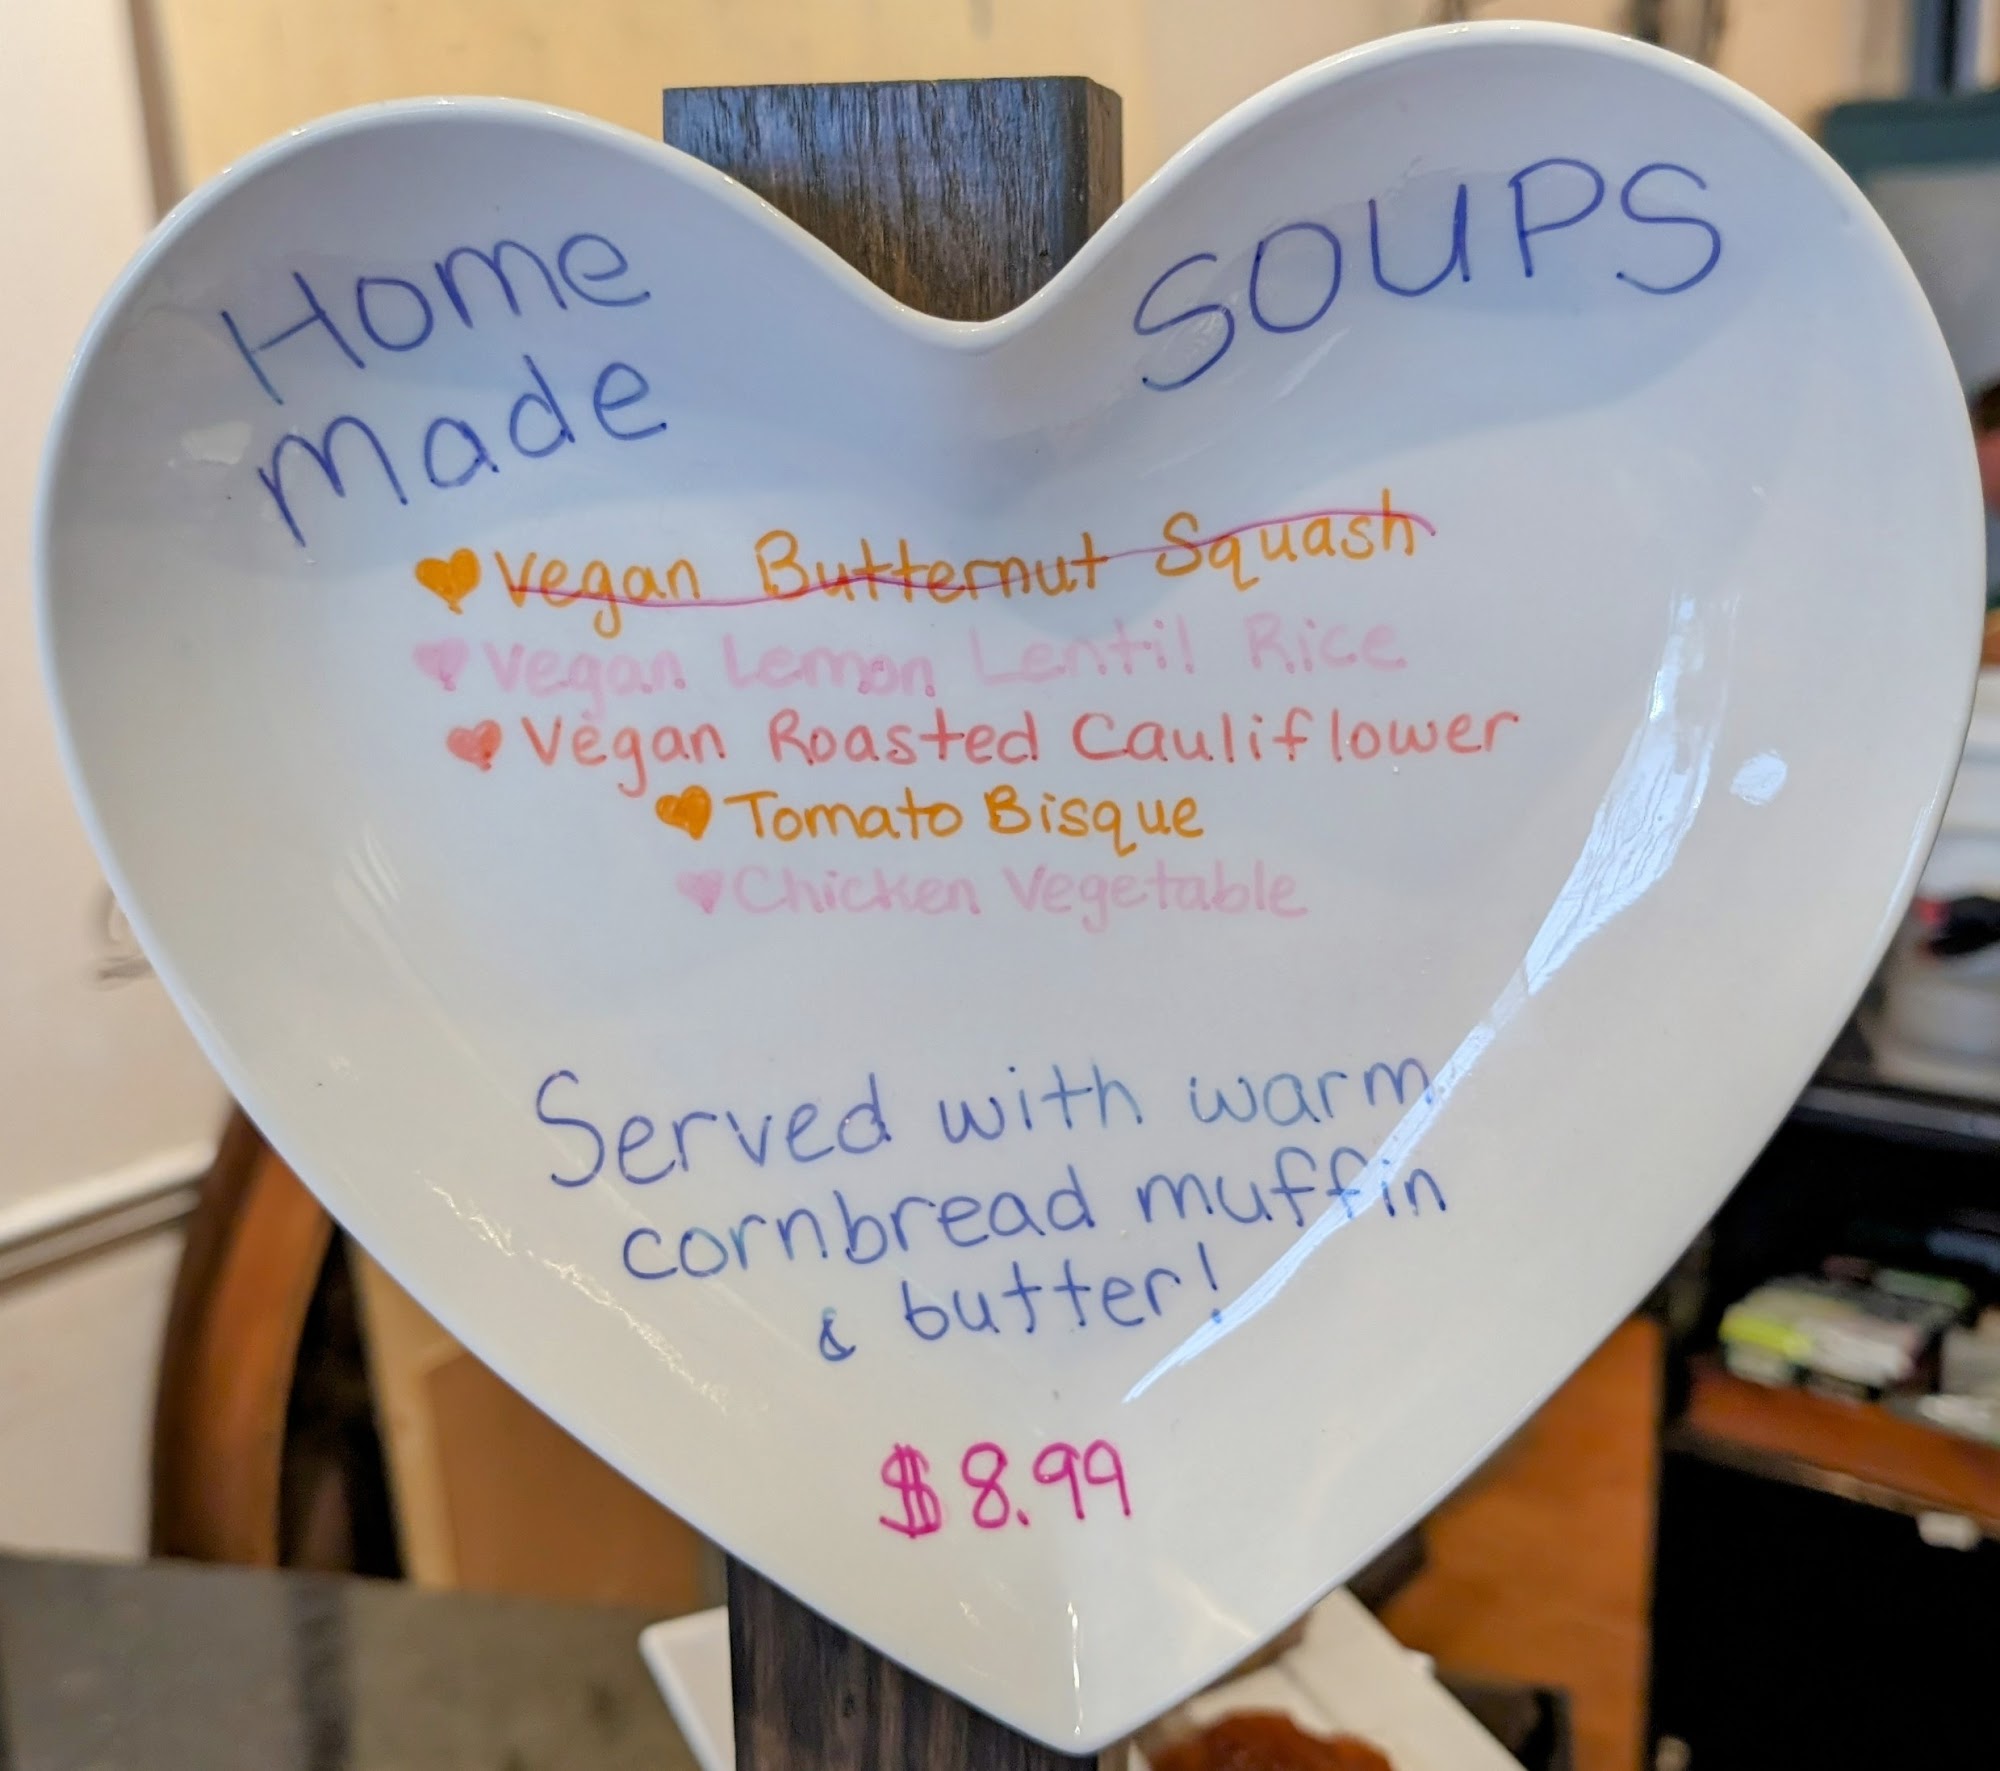 Home
made
SOUPS
Vegan Butternut Squash
Vegan Lemon Lentil Rice
Vegan Roasted Cauliflower
Tomato Bisque
Chicken Vegetable
Served with warm
cornbread muffin
& butter!
$8.99